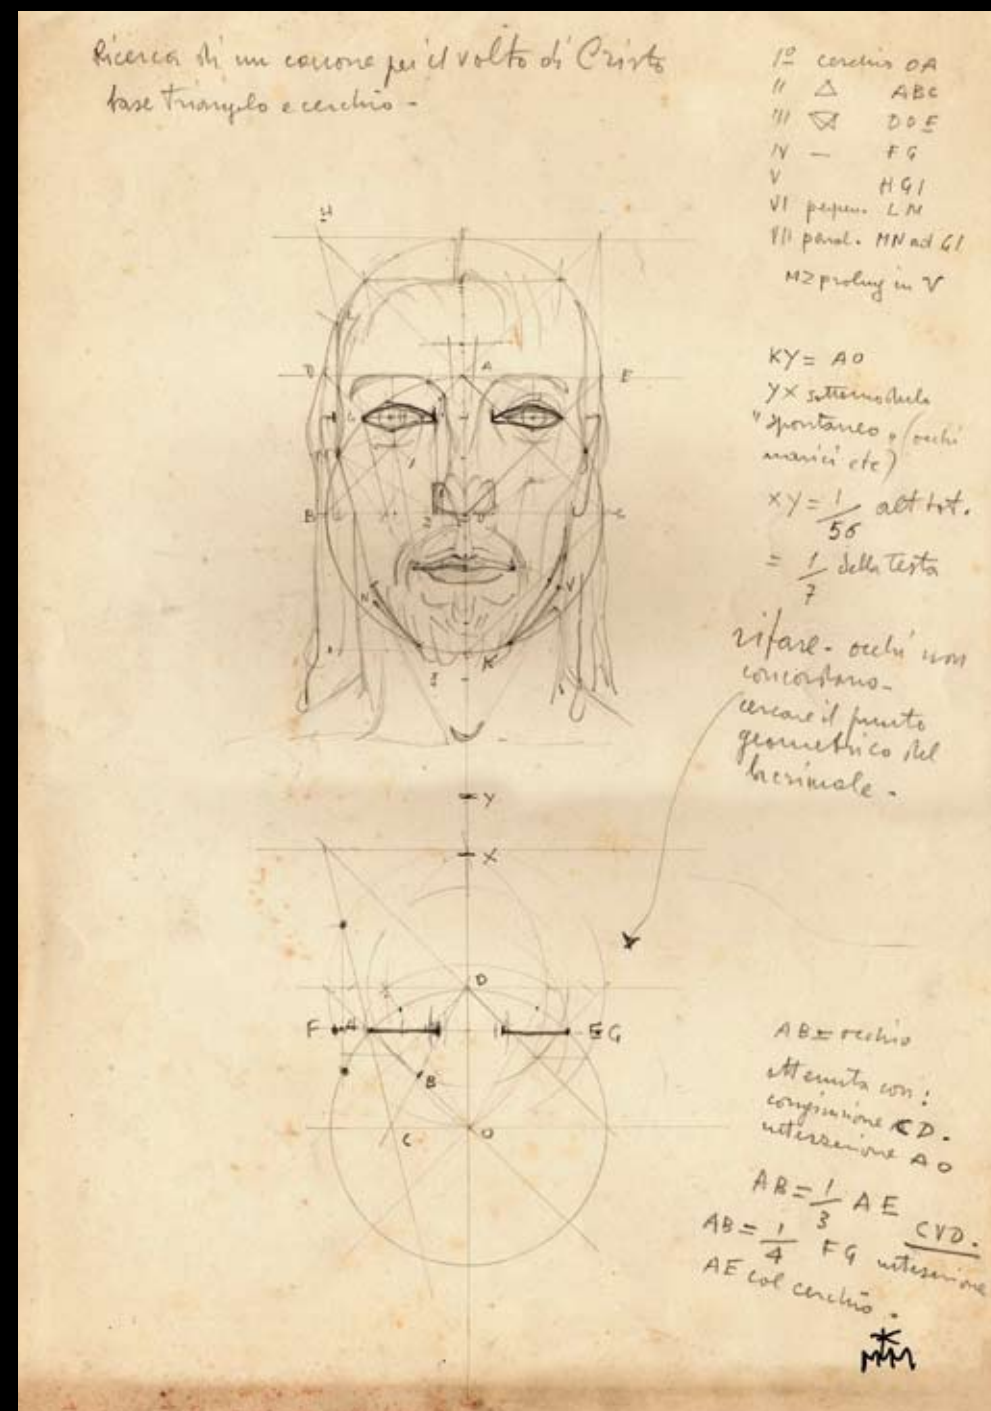 Ricerca di un canone per il volto di Cristo
base Triangolo e cerchio -
1º cerchio OA
" △ ABC
''' DOE
IV — FG
V HGI
VI perpen. LM
VII paral. MN ad GI
MZ prolung in V
KY = AO
YX sottomodulo
"spontaneo" (occhi
narici etc)
XY = 1/56 alt tot.
= 1/7 della testa
rifare - occhi non
concordano -
cercare il punto
geometrico del
lacrimale -
H
D A E
B C
N V
K
Y
X
D
F A E G
B
C O
AB = occhio
ottenuta con:
congiunzione CD.
intersezione AO
AB = 1/3 AE CVD.
AB = 1/4 FG intersezione
AE col cerchio.